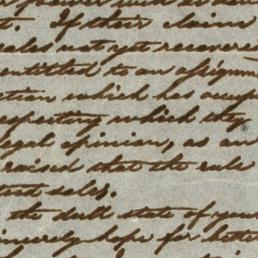 t. If their claim
sales not yet recovered
entitled to an assignm
tion which has
respecting which they
legal opinion, as an
raised that the sale
tent sales.
the dull state of your
sincerely hope for better